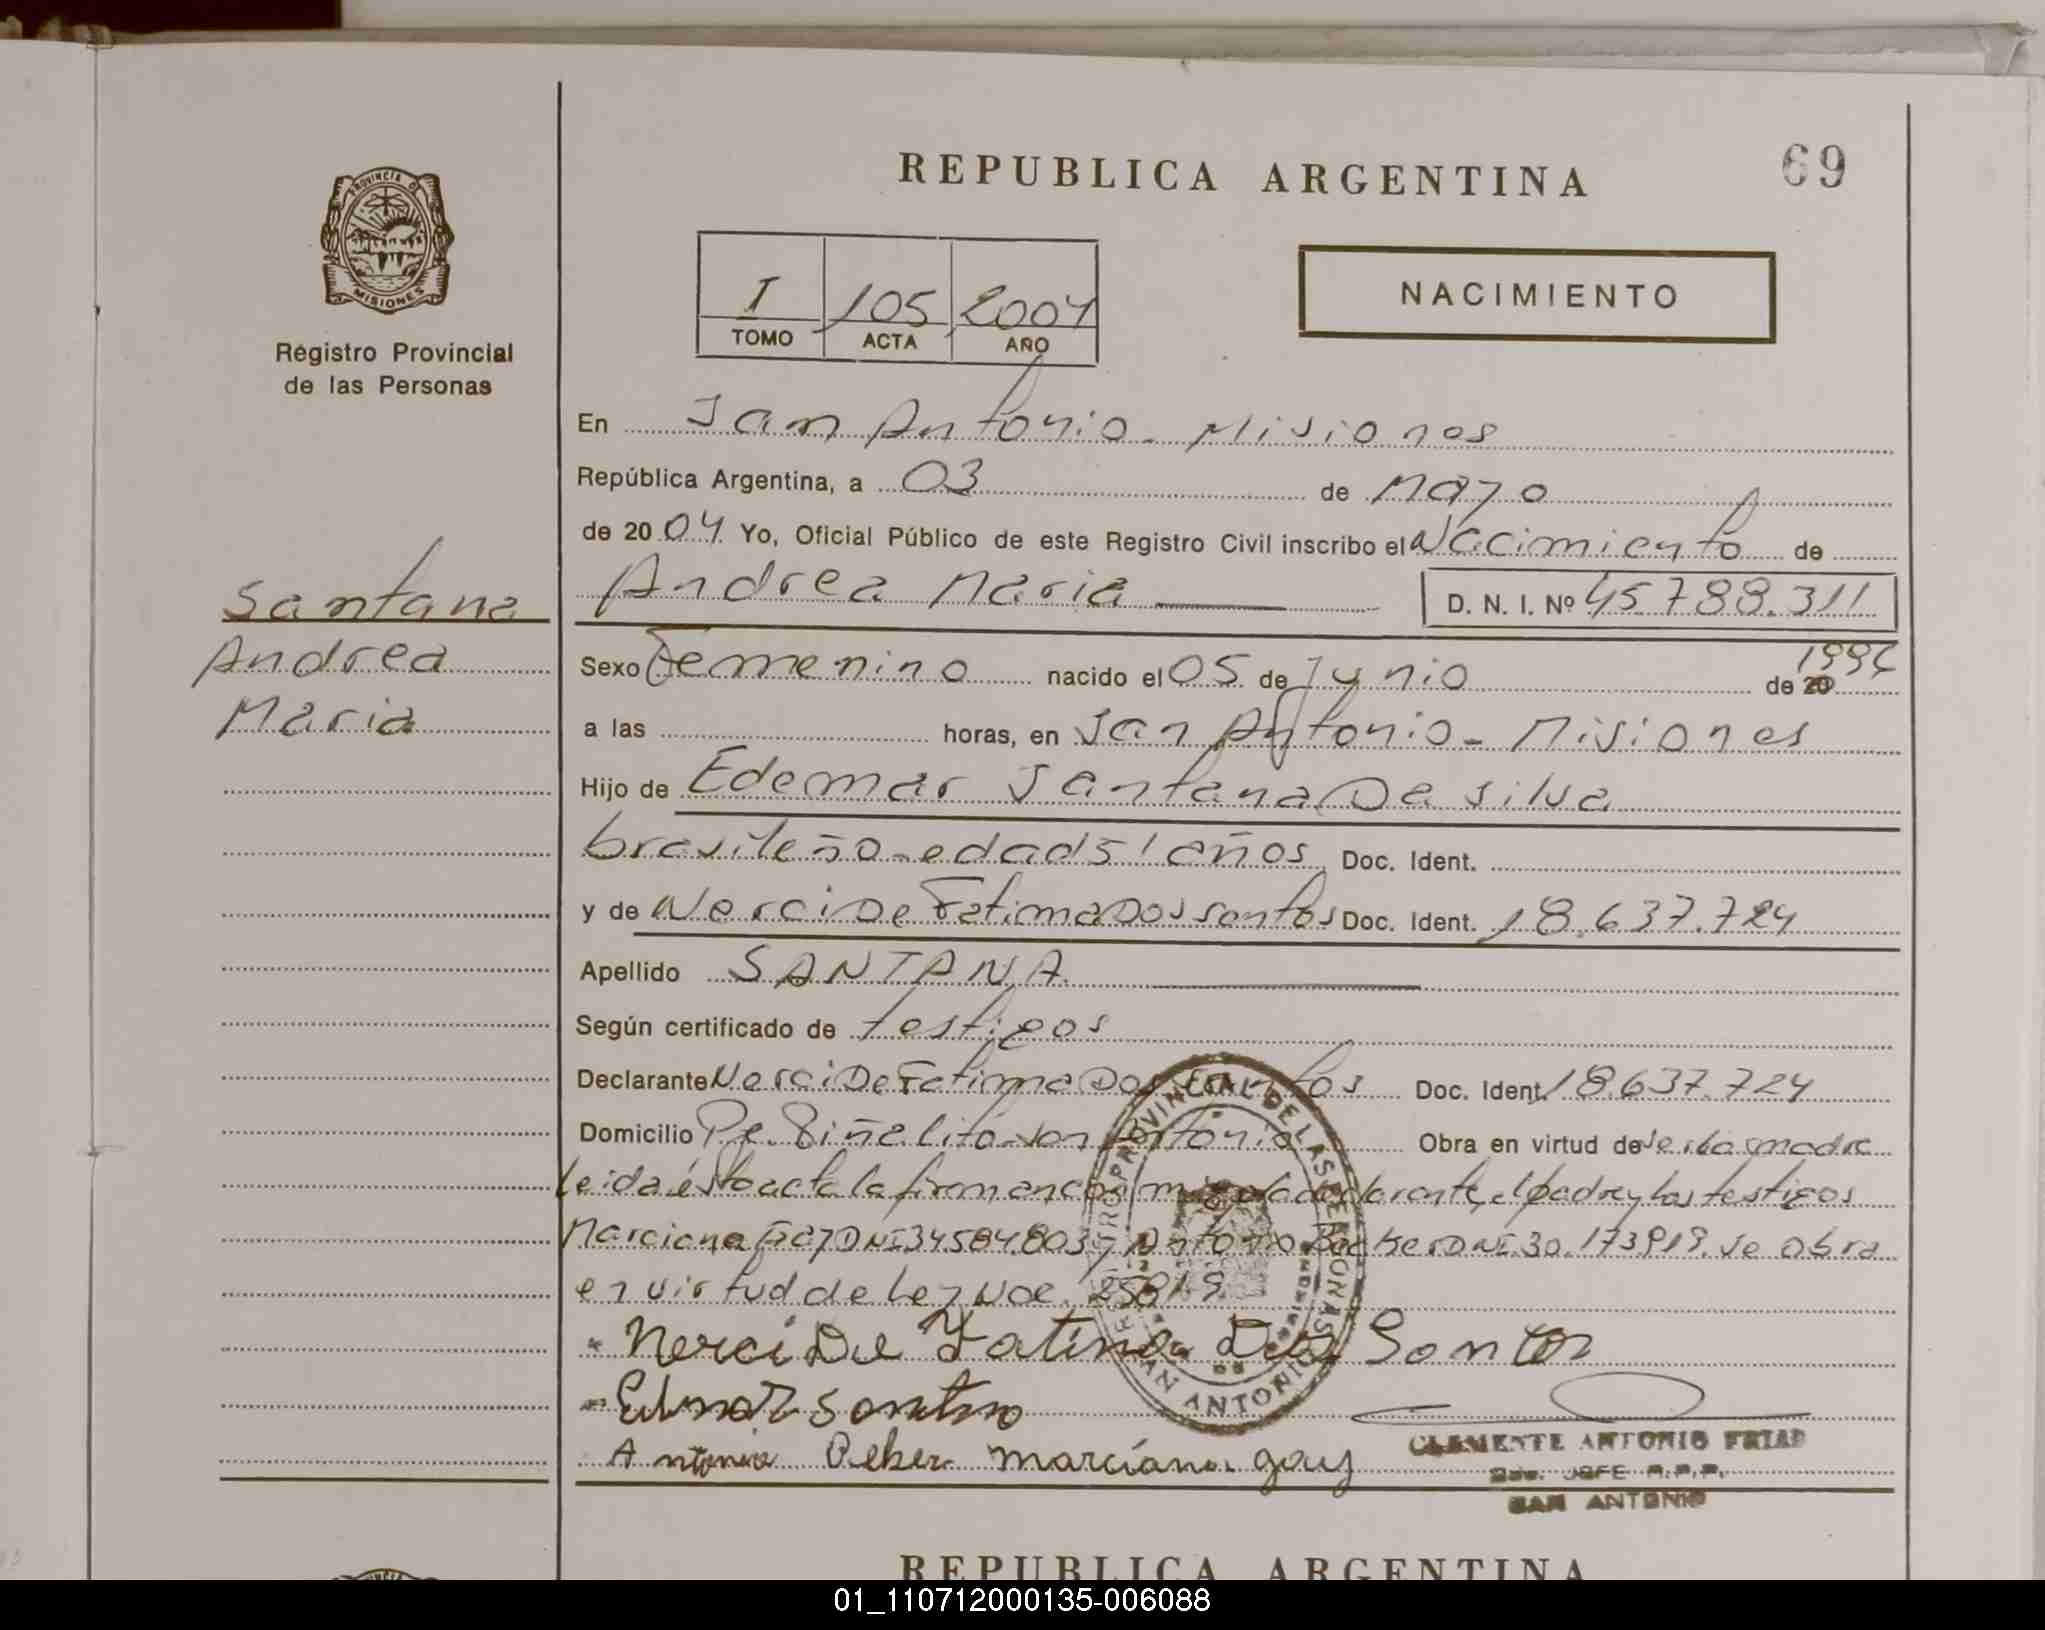 REPUBLICA ARGENTINA
69
PROVINCIA D
MISIONES
Registro Provincial
de las Personas
I 105 2004
TOMO ACTA AÑO
NACIMIENTO
En San Antonio - Misiones
República Argentina, a 03 de Mayo
de 2004 Yo, Oficial Público de este Registro Civil inscribo el Nacimiento de
Andrea Maria D. N. I. Nº 45.788.311
Santana
Andrea
Maria
Sexo Femenino nacido el 05 de Junio de 20 1996
a las horas, en San Antonio - Misiones
Hijo de Edemar Santana Da Silva
brasileño - edad 51 años Doc. Ident.
y de Nerci De Fatima Dos Santos Doc. Ident. 18.637.724
Apellido SANTANA
Según certificado de testigos
Declarante Nerci De Fatima Dos Santos Doc. Ident. 18.637.724
Domicilio Piñalito San Antonio Obra en virtud de ser la madre
Leida ésta acta la firman conmigo la declarante, el padre y los testigos
Marciana Gay DNI 34.584.803 y Antonio Becker DNI 30.173.919. Se obra
en virtud de Ley Nº 25819
Nerci De Fatima Dos Santos
Antonio Beker marciana gay
REGISTRO PROVINCIAL DE LAS PERSONAS
SAN ANTONIO
CLEMENTE ANTONIO FRIAS
JEFE R.P.P.
SAN ANTONIO
REPUBLICA ARGENTINA
01_110712000135-006088